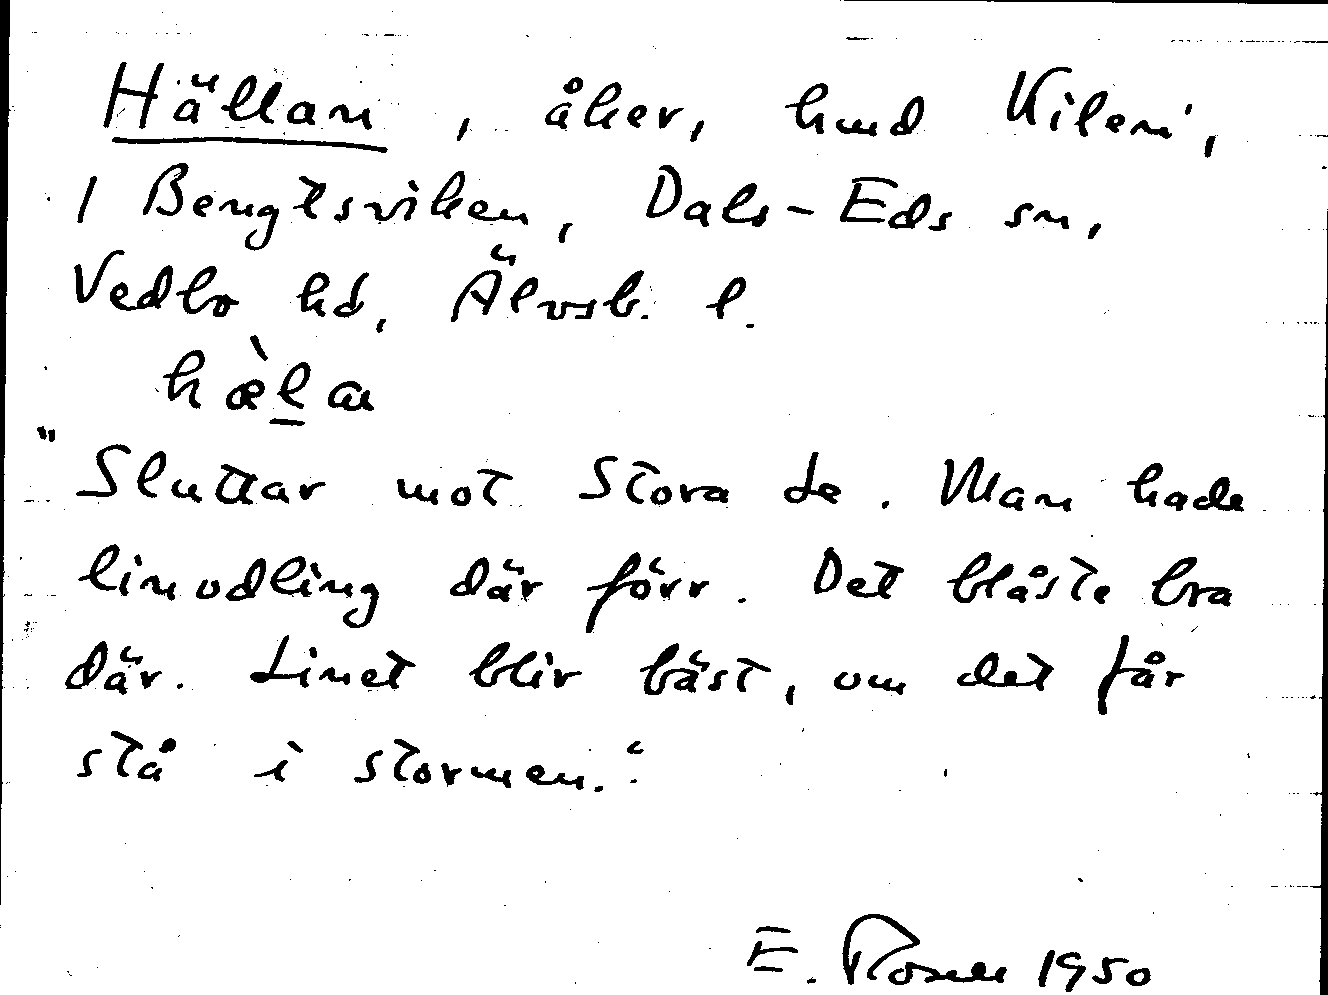 Hällan, åker, hmd Kilen,
1 Bengtsviken, Dals-Eds sn,
Vedbo hd, Älvsb. l.
hæ̀l̠a
"Sluttar mot Stora Le. Man hade
linodling där förr. Det blåste bra
där. Linet blir bäst, om det får
stå i stormen."
E. Rosell 1950